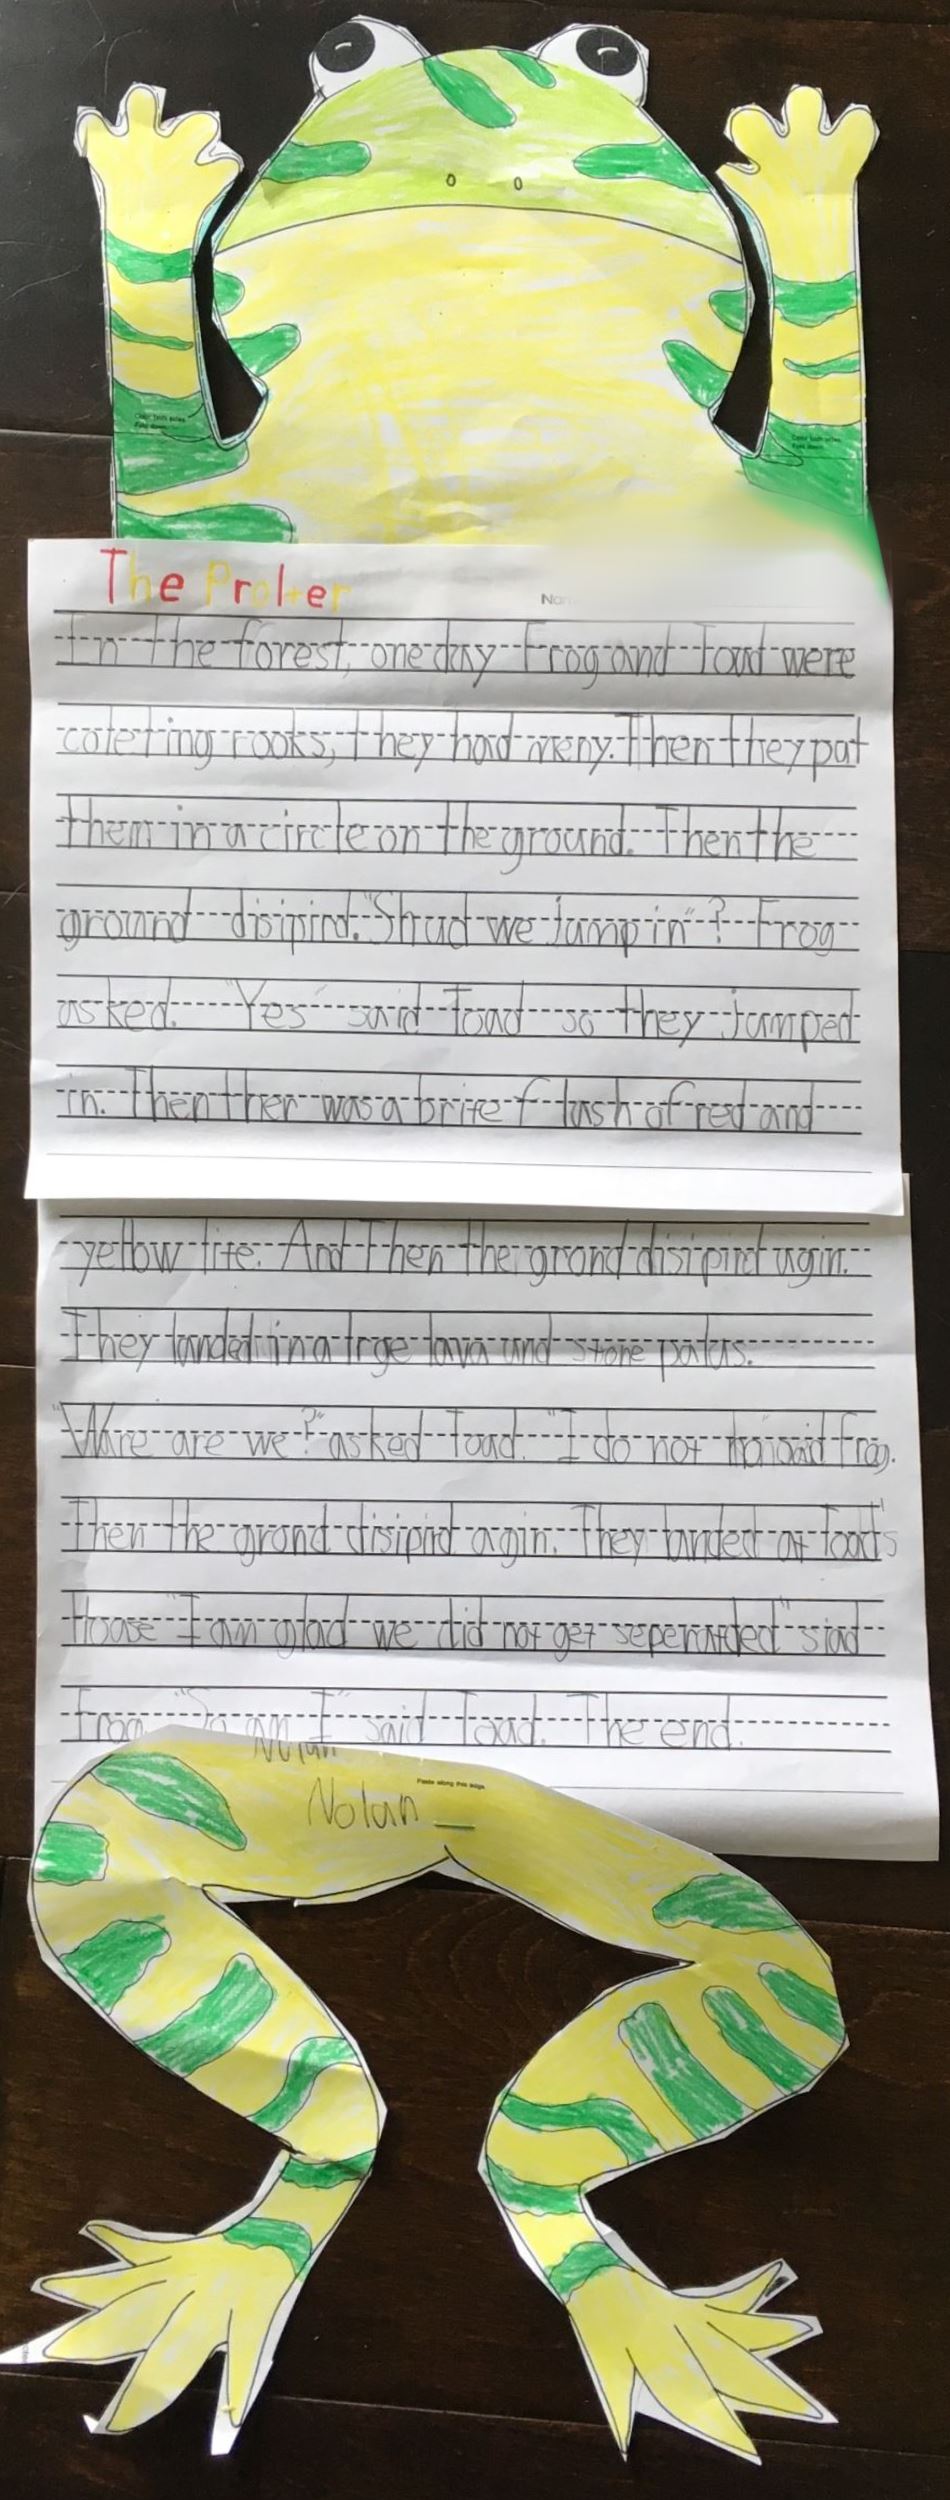 Color both sides
Fold down
Color both sides
Fold down
The Prolter
In the forest, one day Frog and Toad were
coleting rooks, They had meny. Then they put
them in a circle on the ground. Then the
ground disipird. "Shud we jump in"? Frog
asked. "Yes" said Toad so they jumped
in. Then ther was a brite flash of red and
yellow lite. And Then the grond disipird agin.
They landed in a lrge lava and stone palas.
"Ware are we?" asked Toad. "I do not said Frog.
Then the grond disipird agin. They landed at Toad's
House "I am glad we did not get seperated" siad
Frog "So am I" said Toad. The end.
Nolan
Paste along this edge
Nolan